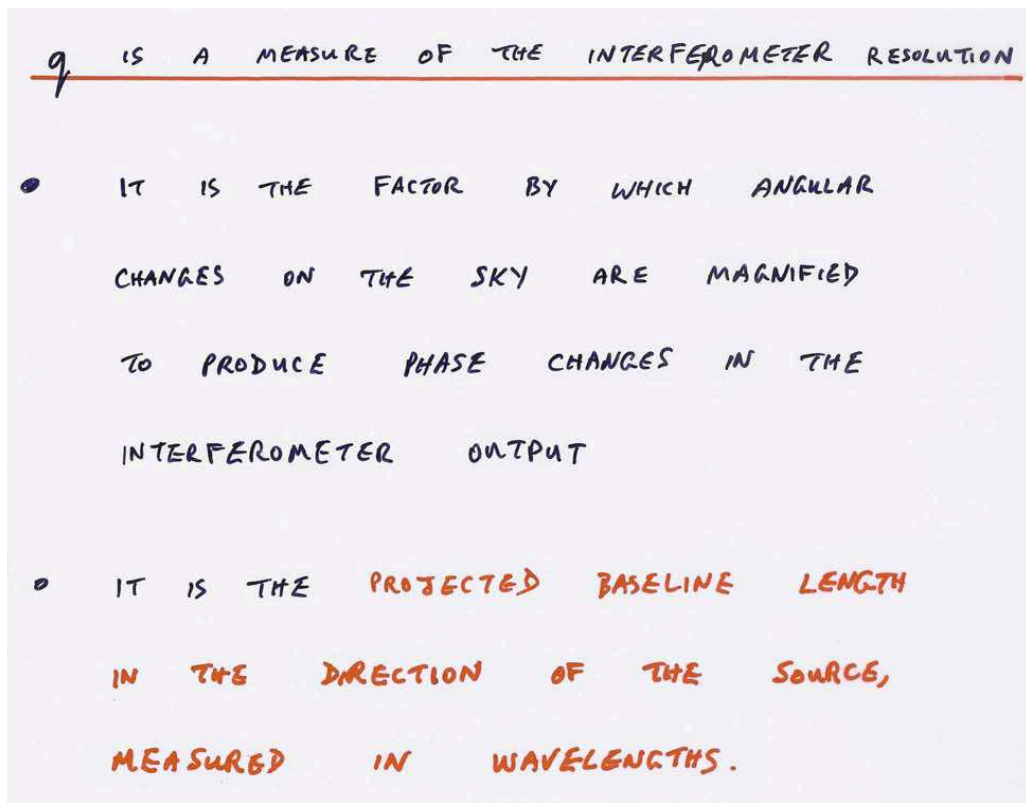 q IS A MEASURE OF THE INTERFEROMETER RESOLUTION
• IT IS THE FACTOR BY WHICH ANGULAR
CHANGES ON THE SKY ARE MAGNIFIED
TO PRODUCE PHASE CHANGES IN THE
INTERFEROMETER OUTPUT
• IT IS THE PROJECTED BASELINE LENGTH
IN THE DIRECTION OF THE SOURCE,
MEASURED IN WAVELENGTHS.